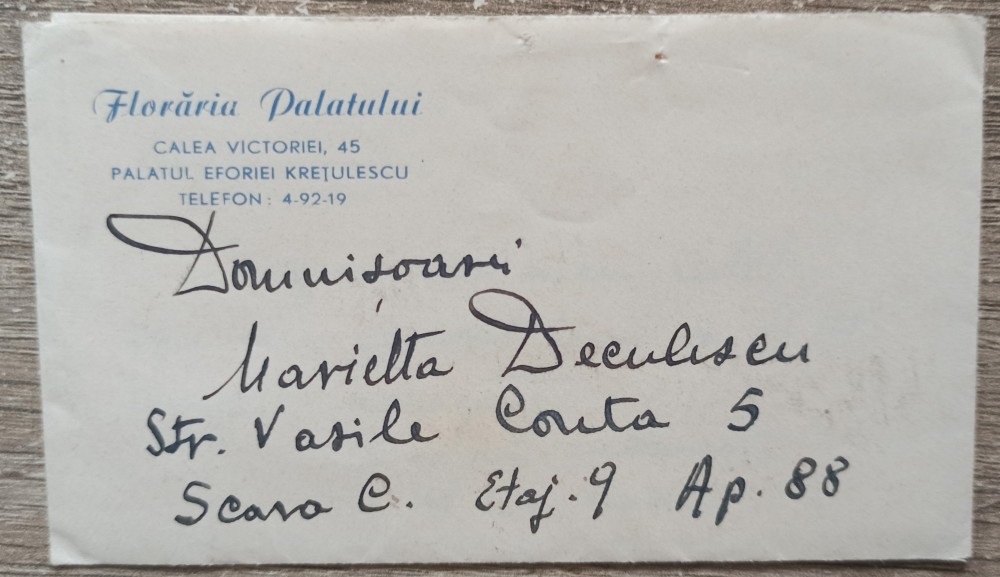 Florăria Palatului
CALEA VICTORIEI, 45
PALATUL EFORIEI KREȚULESCU
TELEFON: 4-92-19
Domnișoarei
Marietta Deculescu
Str. Vasile Conta 5
Scara C. Etaj. 9 Ap. 88